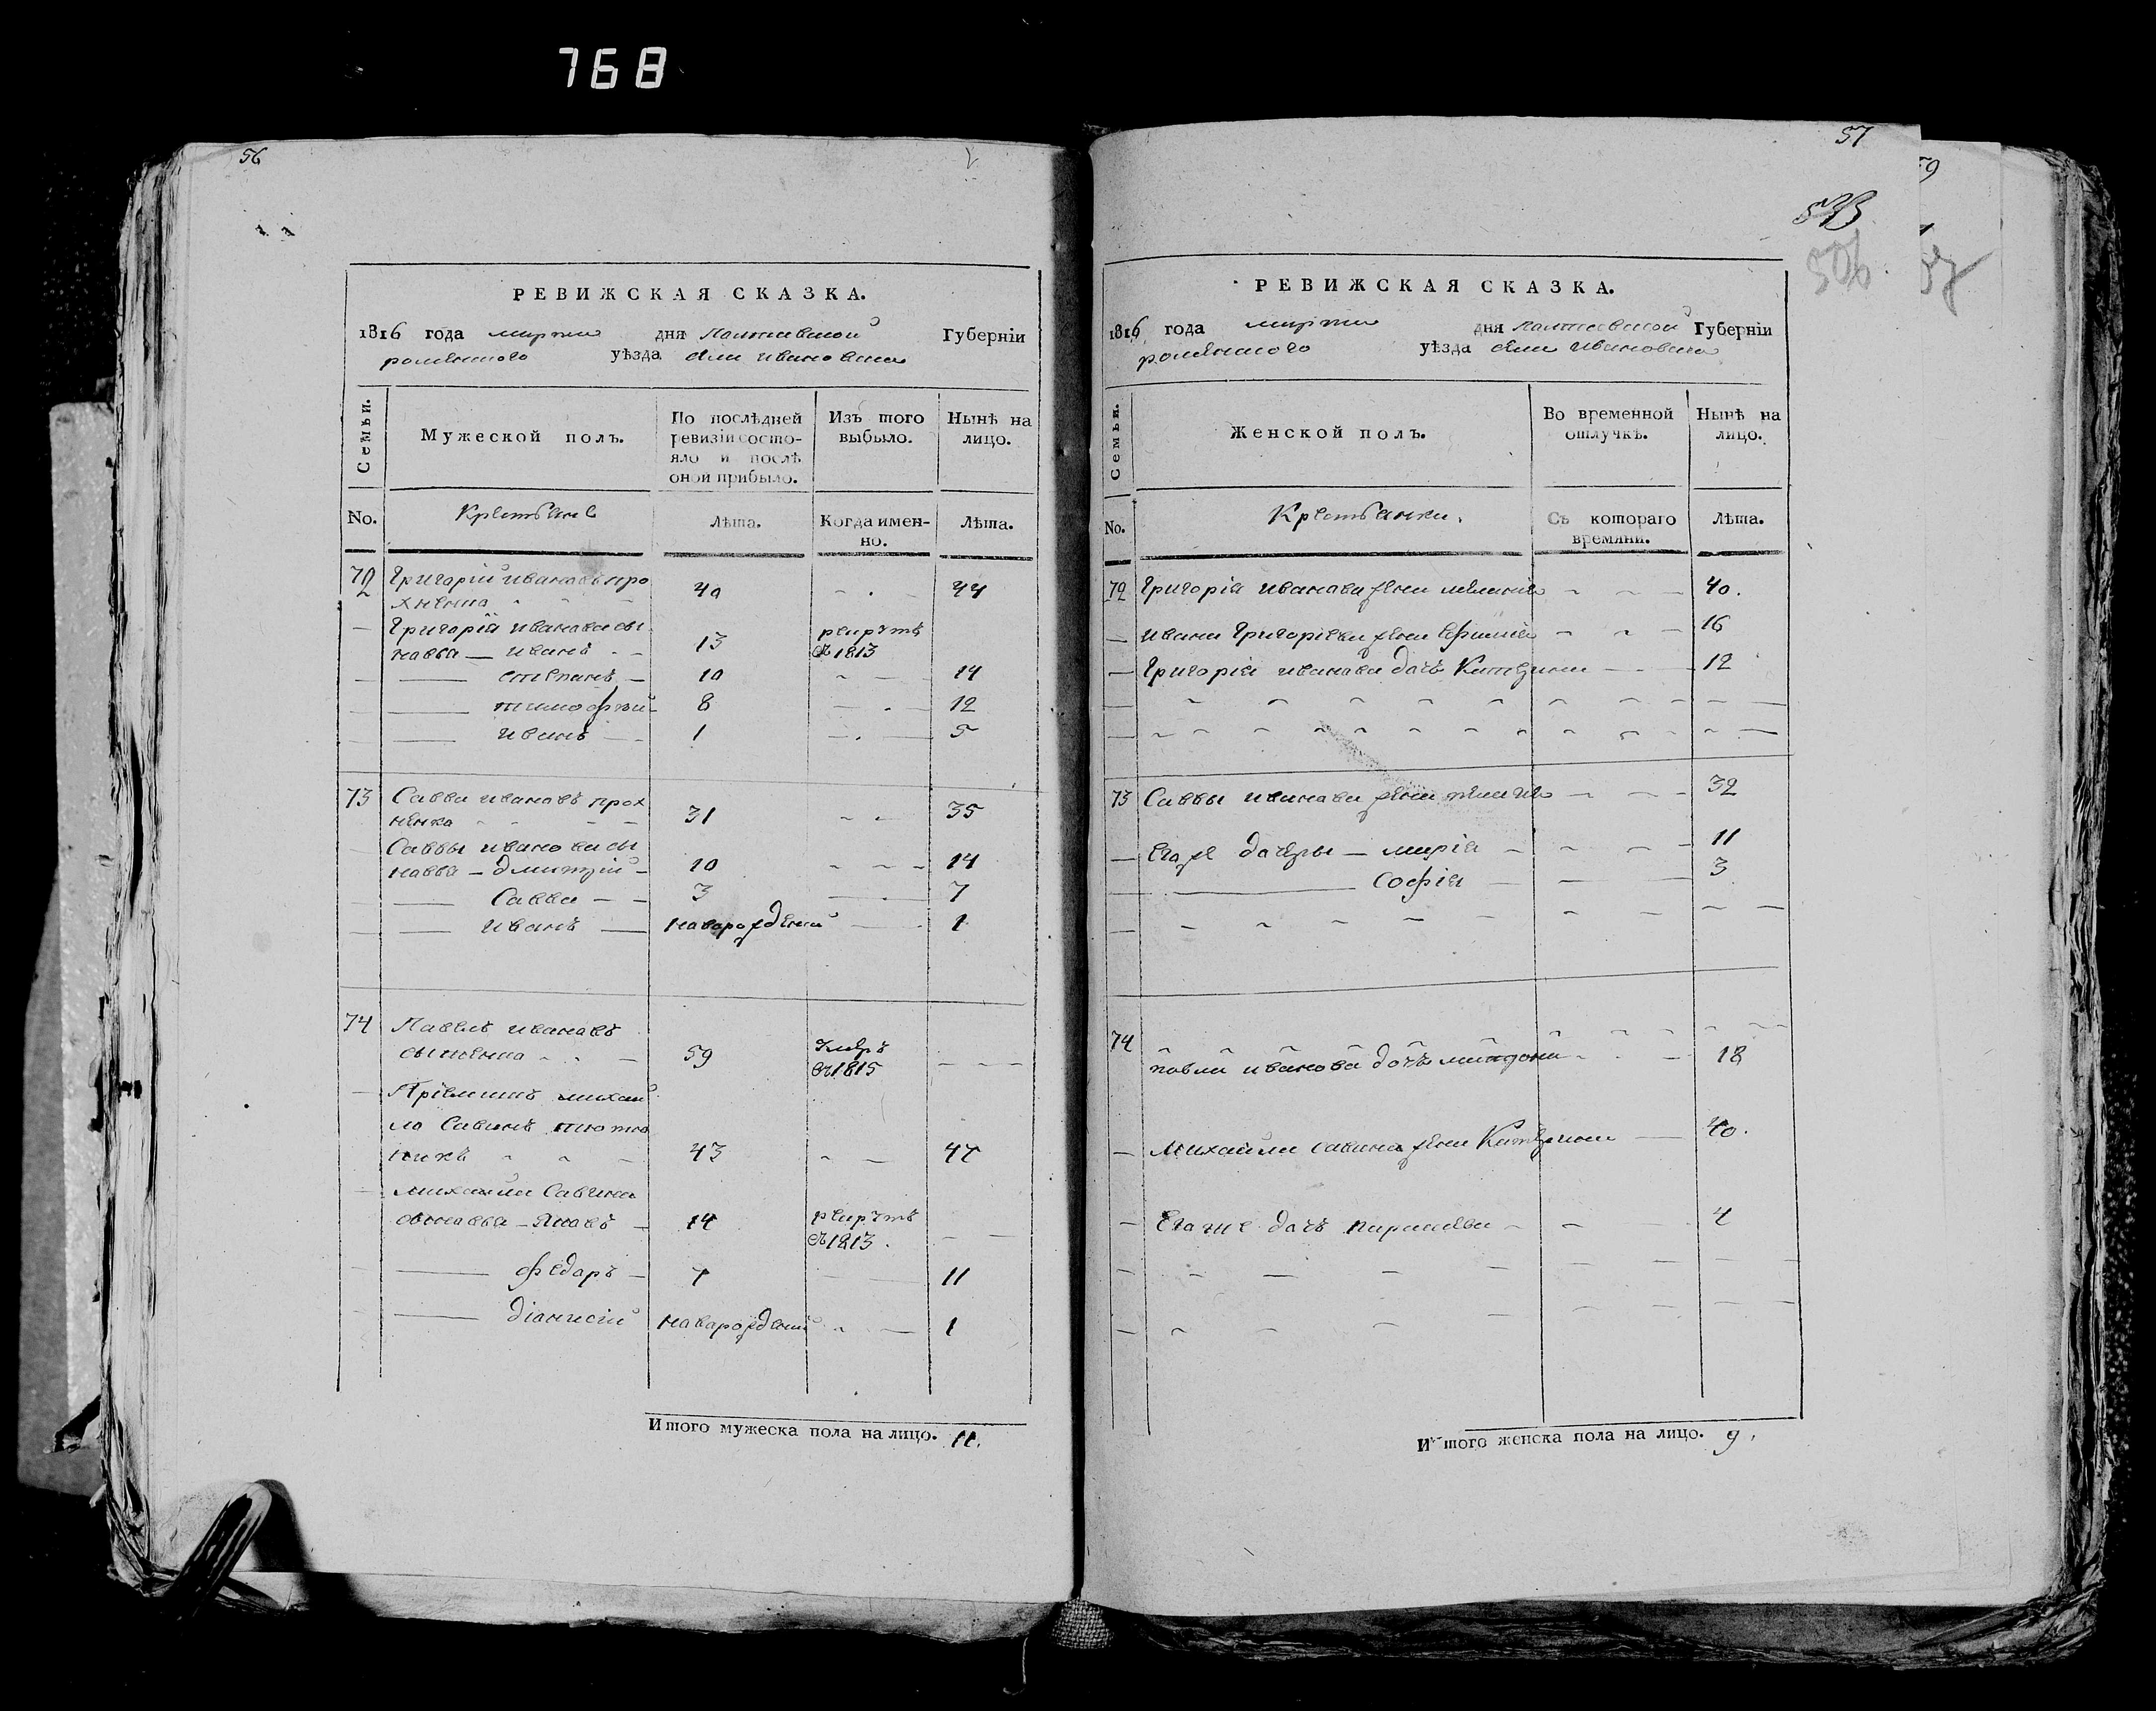 768
56
РЕВИЖСКАЯ СКАЗКА.
1816 года марта дня Полтавской Губерніи
роменского уѣзда села ивановки
Семьи.
Мужеской полъ.
По послѣдней ревизіи состояло и послѣ оной прибыло.
Изъ того выбыло.
Нынѣ на лицо.
No.
Крестьяне
Лѣта.
Когда именно.
Лѣта.
72 Григорій ивановъ про
хненко 40 44
Григорія иванова сы
новья — иванъ 13 рекрутъ въ 1813
степанъ 10 14
тимофѣй 8 12
иванъ 1 5
73 Савва ивановъ прох
ненко 31 35
Саввы иванова сы
новья — дмитрій 10 14
Савва 3 7
иванъ новорожденій 1
74 Павелъ ивановъ
59 умеръ въ 1815
Пріемышъ михай
ло Савинъ
никъ 43 47
михайла Савина
сыновья — Яковъ 14 рекрутъ въ 1813.
федоръ 7 11
діонисій новорожденій 1
Итого мужеска пола на лицо. 11.
57
59
506
РЕВИЖСКАЯ СКАЗКА.
1816 года марта дня Полтавской Губерніи
роменского уѣзда села ивановки
Семьи.
Женской полъ.
Во временной отлучкѣ.
Нынѣ на лицо.
No.
Крестьянки.
Съ котораго времяни.
Лѣта.
72 Григорія иванова жена меланія 40.
ивана Григоріева жена ефимія 16
Григорія иванова дочь Катерина 12
73 Саввы иванова жена пелагія 32
Его же дочери — марія 11
Софія 3
74
павла иванова дочь 18
Михайла савина жена Катерина 40.
Его же дочь параскева 4
Итого женска пола на лицо. 9.